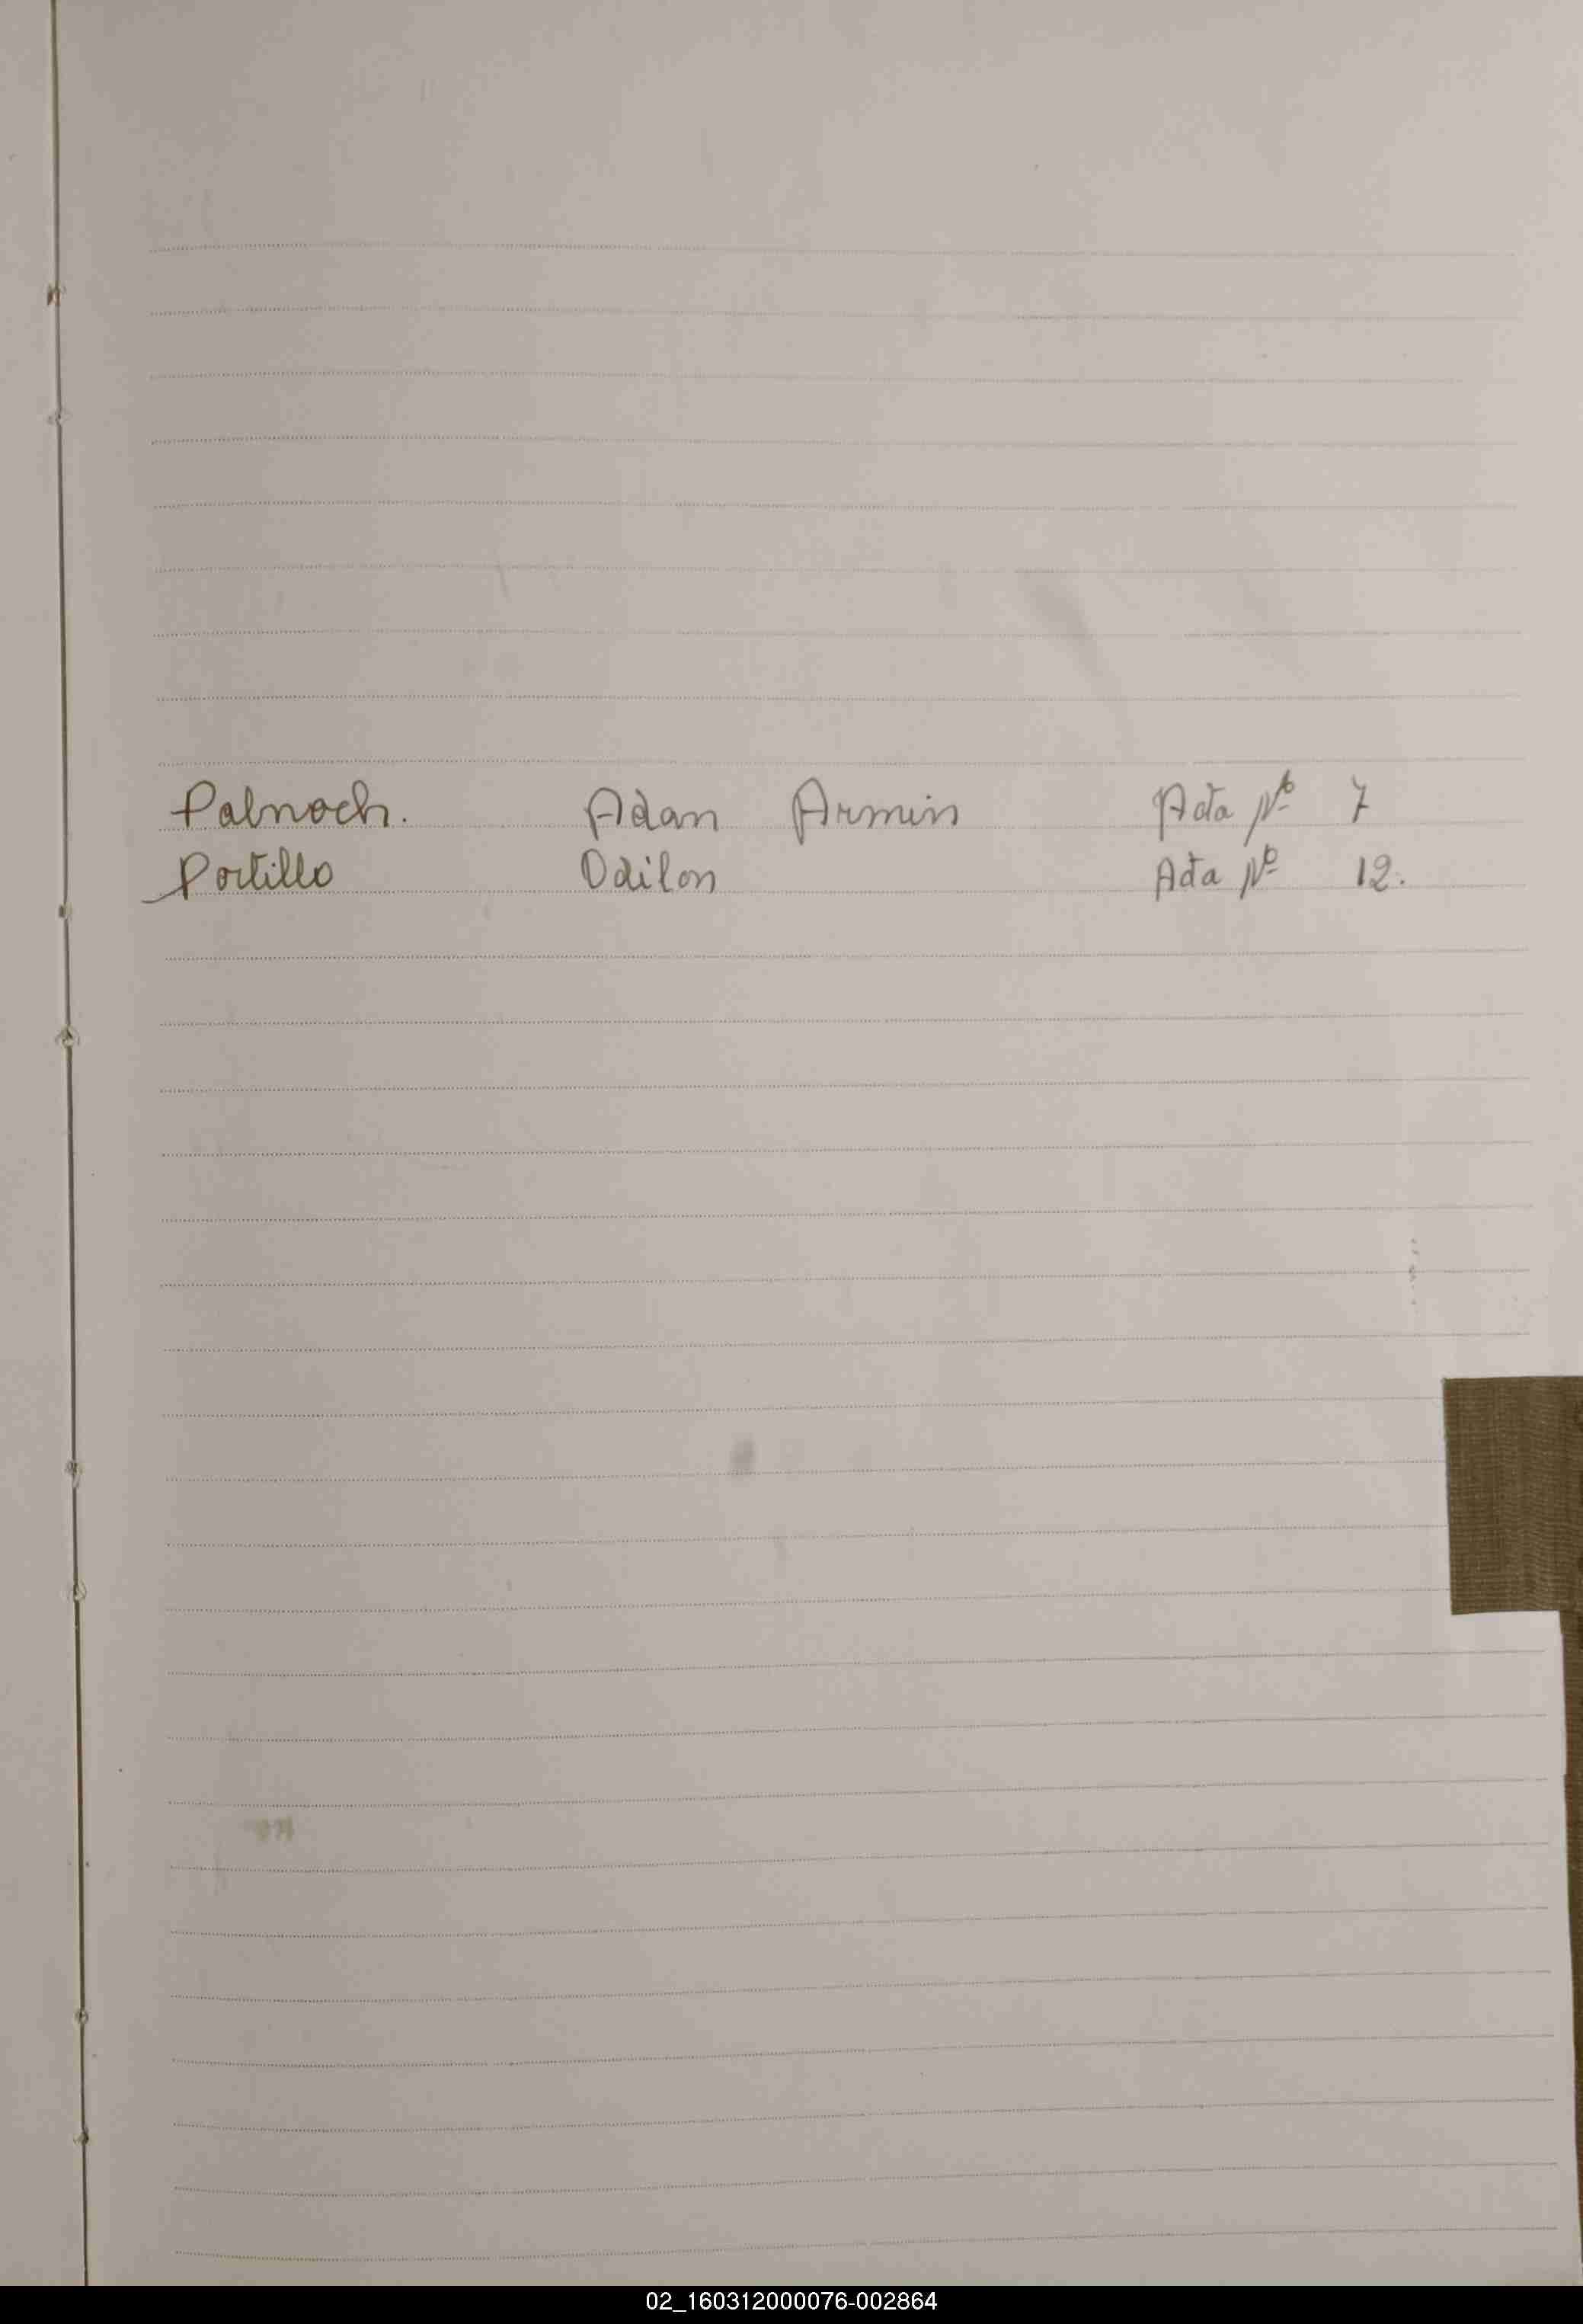 Palnoch. Adan Armin Acta Nº 7
Portillo Odilon Acta Nº 12.
02_160312000076-002864